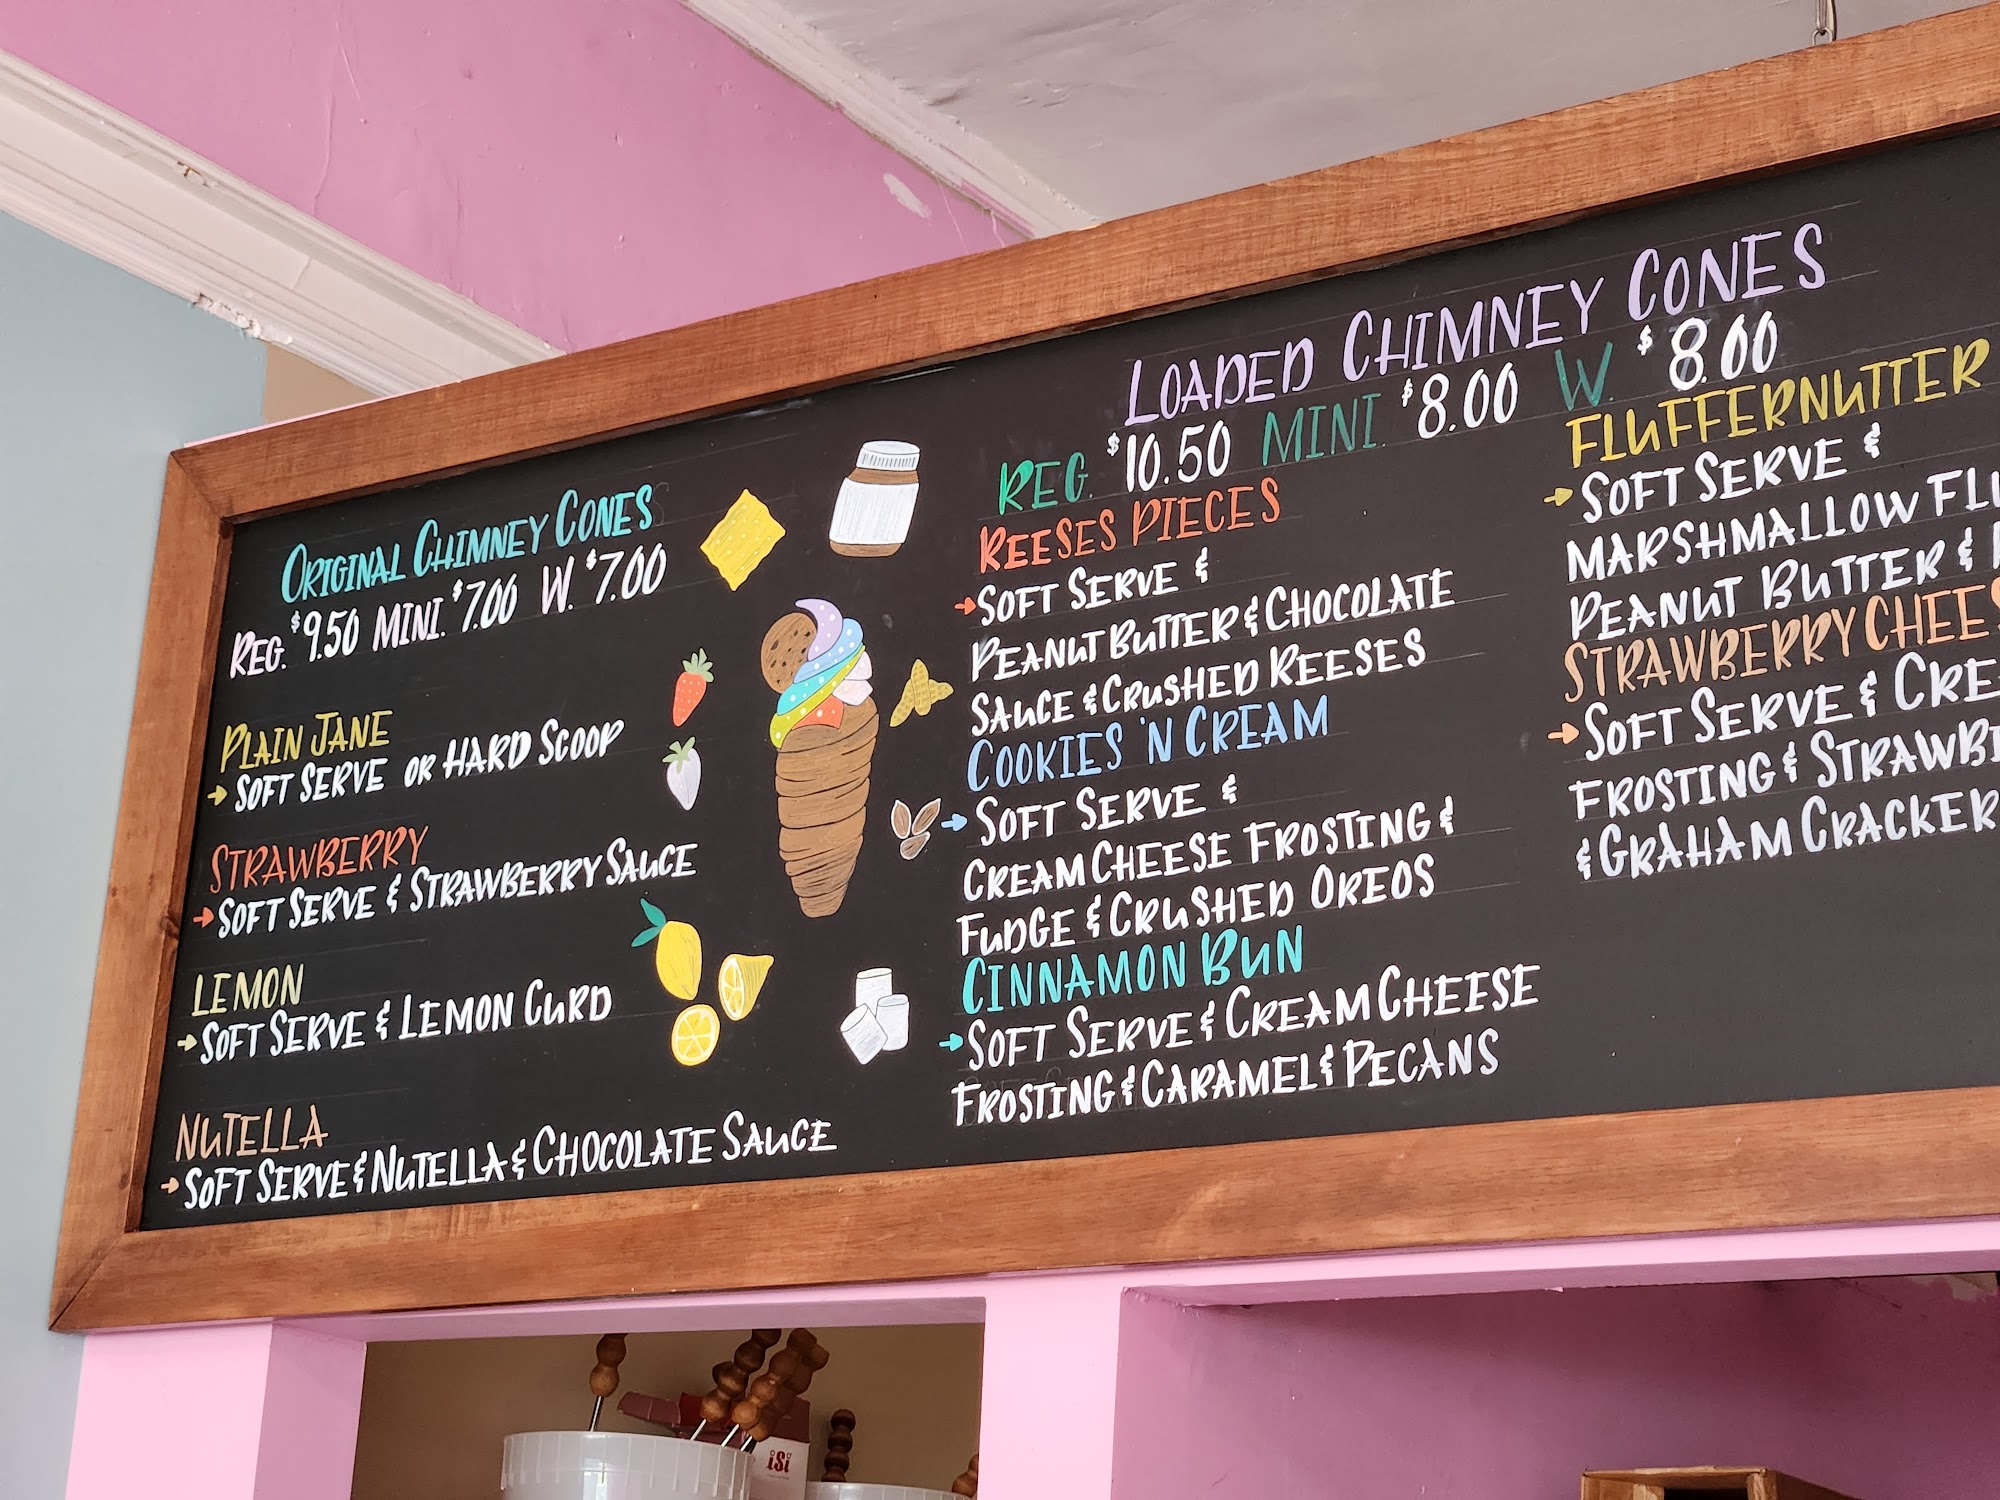 ORIGINAL CHIMNEY CONES
REG. $9.50 MINI. $7.00 W. $7.00
PLAIN JANE
SOFT SERVE OR HARD SCOOP
STRAWBERRY
SOFT SERVE & STRAWBERRY SAUCE
LEMON
SOFT SERVE & LEMON CURD
NUTELLA
SOFT SERVE & NUTELLA & CHOCOLATE SAUCE
LOADED CHIMNEY CONES
REG. $10.50 MINI. $8.00 W. $8.00
REESES PIECES
SOFT SERVE &
PEANUT BUTTER & CHOCOLATE
SAUCE & CRUSHED REESES
COOKIES 'N CREAM
SOFT SERVE &
CREAM CHEESE FROSTING &
FUDGE & CRUSHED OREOS
CINNAMON BUN
SOFT SERVE & CREAM CHEESE
FROSTING & CARAMEL & PECANS
FLUFFERNUTTER
SOFT SERVE &
MARSHMALLOW
PEANUT BUTTER &
STRAWBERRY
SOFT SERVE &
FROSTING &
& GRAHAM CRACKER
iSi